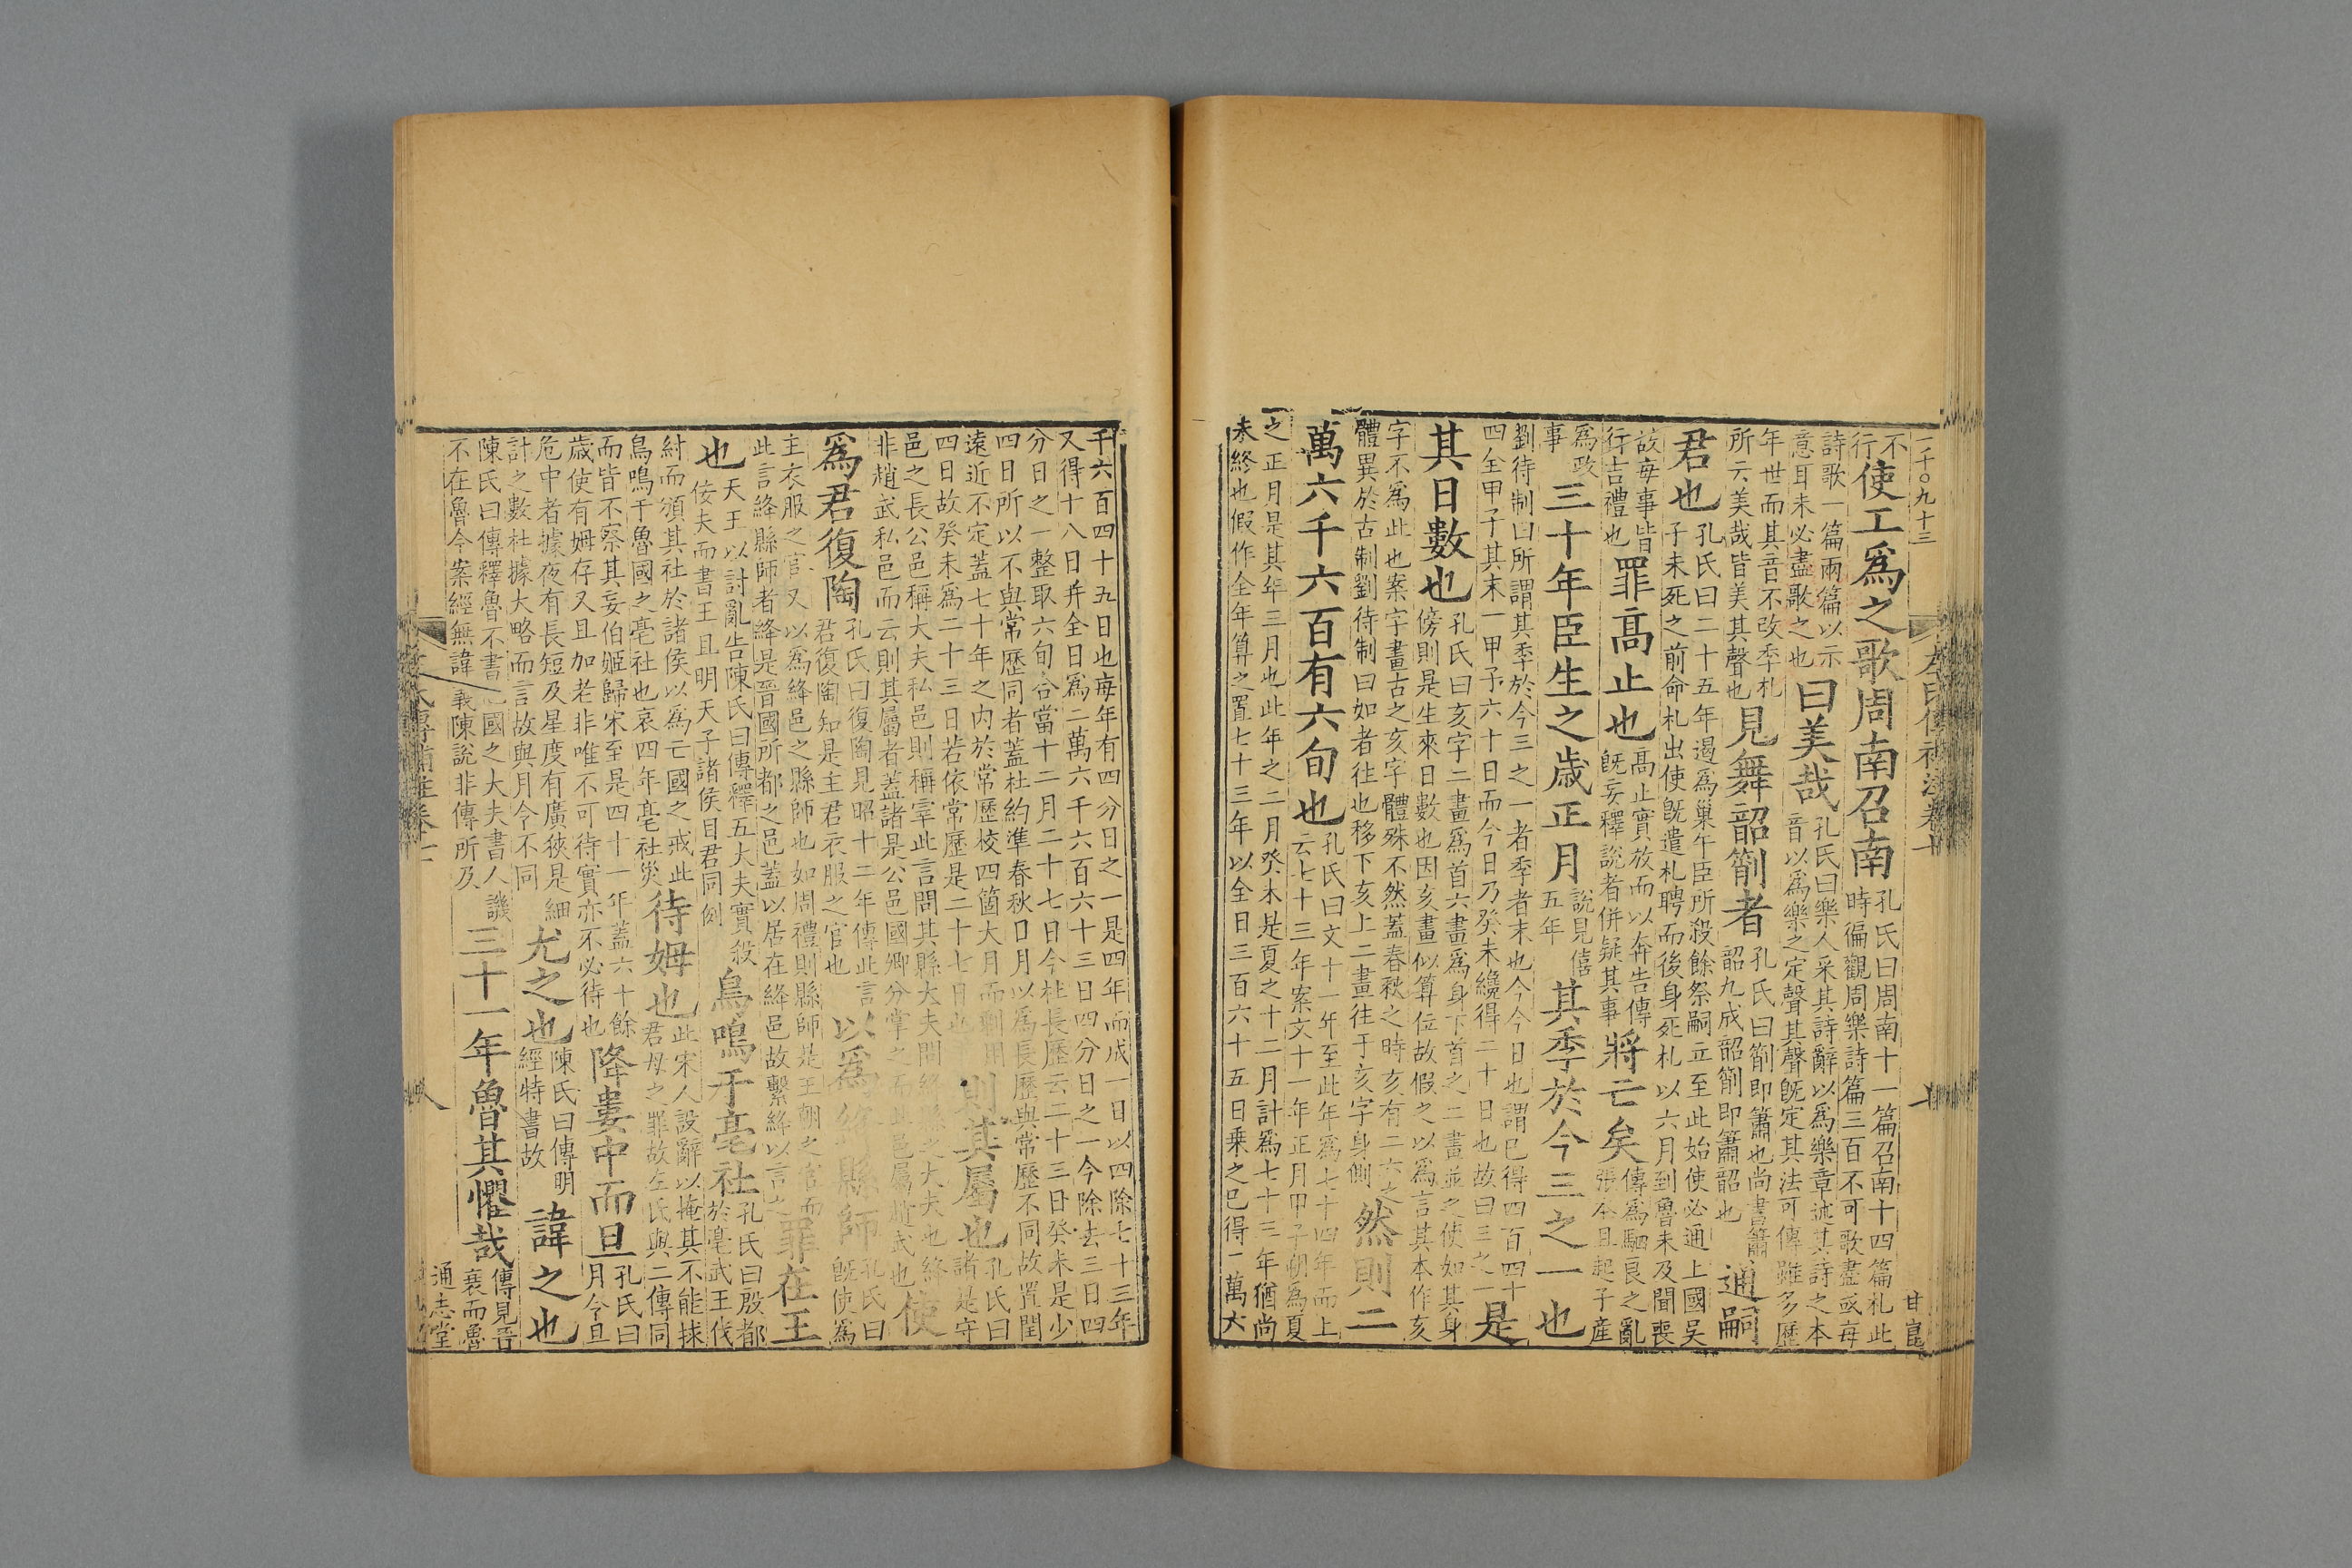 一千〇九十三
甘良
不行使工爲之歌周南召南孔氏曰周南十一篇召南十四篇札此時徧觀周樂詩篇三百不可歌盡或每
詩歌一篇兩篇以示意耳未必盡歌之也曰美哉孔氏曰樂人采其詩辭以爲樂章述其詩之本音以爲樂之定聲其聲旣定其法可傳雖多歷
年世而其音不改季札所云美哉皆美其聲也見舞韶箾者孔氏曰箾即簫也尚書簫韶九成韶箾即簫韶也通嗣
君也孔氏曰二十五年遏爲巢牛臣所殺餘祭嗣立至此始使必通上國吳子未死之前命札出使旣遣札聘而後身死札以六月到魯未及聞喪
故每事皆行吉禮也罪高止也高止實放而以奔告傳旣妄釋說者併疑其事將亡矣傳爲駟良之亂張本且起子產
爲政事三十年臣生之歲正月說見僖五年其季於今三之一也
劉待制曰所謂其季於今三之一者季者末也今今日也謂已得四百四十四全甲子其末一甲子六十日而今日乃癸未纔得二十日也故曰三之一是
其日數也孔氏曰亥字二畫爲首六畫爲身下首之二畫並之使如其身傍則是生來日數也因亥畫似算位故假之以爲言其本作亥
字不爲此也案字書古之亥字體殊不然蓋春秋之時亥有二六之體異於古制劉待制曰如者往也移下亥上二畫往于亥字身側然則二
萬六千六百有六旬也孔氏曰文十一年至此年爲七十四年而上云七十三年案文十一年正月甲子朔爲夏
之正月是其年三月也此年之二月癸未是夏之十二月計爲七十三年猶尚未終也假作全年算之置七十三年以全日三百六十五日乘之已得一萬六
千六百四十五日也每年有四分日之一是四年而成一日以四除七十三年又得十八日并全日爲二萬六千六百六十三日四分日之一今除去三日四
分日之一整取六旬合當十二月二十七日今杜長歷云二十三日癸未是少四日所以不與常歷同者蓋杜約準春秋日月以爲長歷與常歷不同故置閏
遠近不定蓋七十年之內於常歷校四箇大月而則其屬也孔氏曰諸是守
四日故癸未爲二十三日若依常歷是二十七日也
邑之長公邑稱大夫私邑則稱宰此言問其縣大夫問絳之大夫也絳非趙武私邑而云則其屬者蓋諸是公邑國卿分掌之而此邑屬趙武也使
爲君復陶孔氏曰復陶見昭十二年傳此言君復陶知是主君衣服之官也以爲絳縣師孔氏曰旣使爲
主衣服之官又以爲絳邑之縣師也如周禮則縣師是王朝之官而此言絳縣師者絳是晉國所都之邑蓋以居在絳邑故繫絳以言之罪在王
也天王以討亂告陳氏曰傳釋五大夫實殺佞夫而書王且明天子諸侯目君同例鳥鳴于亳社孔氏曰殷都於亳武王伐
紂而頒其社於諸侯以爲亡國之戒此鳥鳴于魯國之亳社也哀四年亳社災待姆也此宋人設辭以掩其不能救君母之罪故左氏與二傳同
而皆不察其妄伯姬歸宋至是四十一年蓋六十餘歲使有姆存又且加老非唯不可待實亦不必待也降婁中而旦孔氏曰月令旦
危中者據夜有長短及星度有廣狹是細計之數杜據大略而言故與月令不同尤之也陳氏曰傳明經特書故諱之也
陳氏曰傳釋魯不書國之大夫書人譏不在魯今案經無諱義陳說非傳所及三十一年魯其懼哉傳見晉衰而魯
通志堂